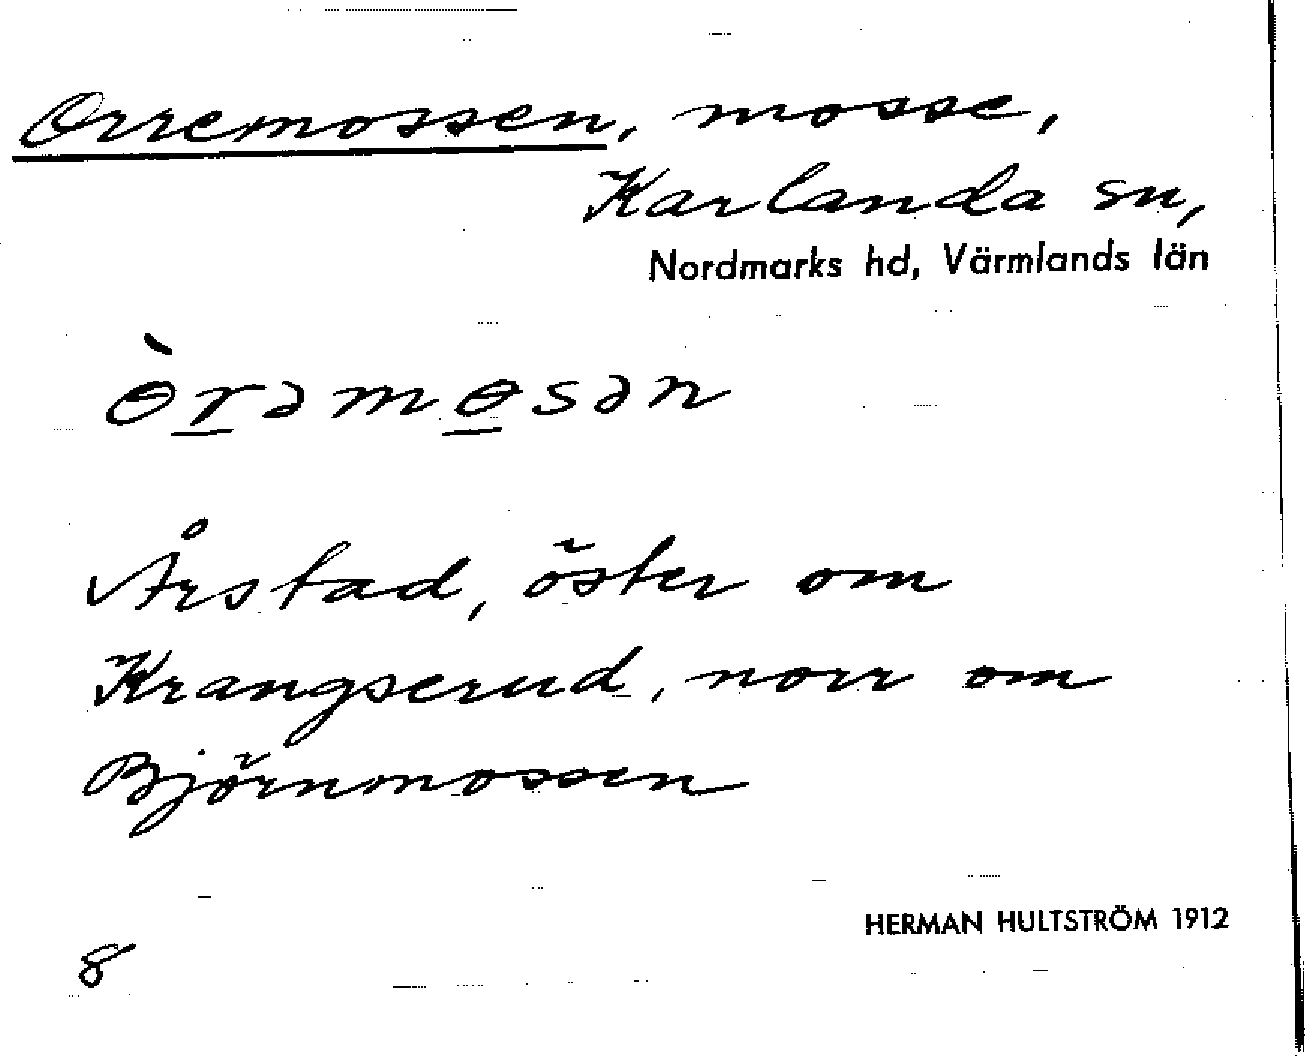 Orremossen, mosse,
Karlanda sn,
Nordmarks hd, Värmlands län
ɵ̀r̲əmɵ̲sən
Årstad, öster om
Krangserud, norr om
Björnmossen
HERMAN HULTSTRÖM 1912
8